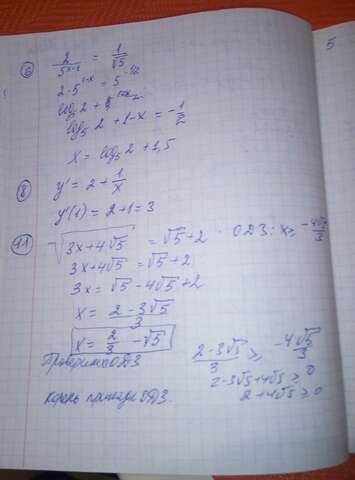 5
6 2/5^(x-1) = 1/√5
2·5^(1-x) = 5^(-1/2)
log₅2 + 1-x = -1/2
x = log₅2 + 1,5
8 y' = 2 + 1/x
y'(1) = 2+1 = 3
11 √(3x+4√5) = √5+2 ОДЗ: x ≥ -4√5/3
3x+4√5 = √5+2
3x = √5 - 4√5 + 2
x = (2-3√5)/3
x = 2/3 - √5
Проверим ОДЗ
(2-3√5)/3 ≥ -4√5/3
2-3√5+4√5 ≥ 0
2+4√5 ≥ 0
Корень ОДЗ.